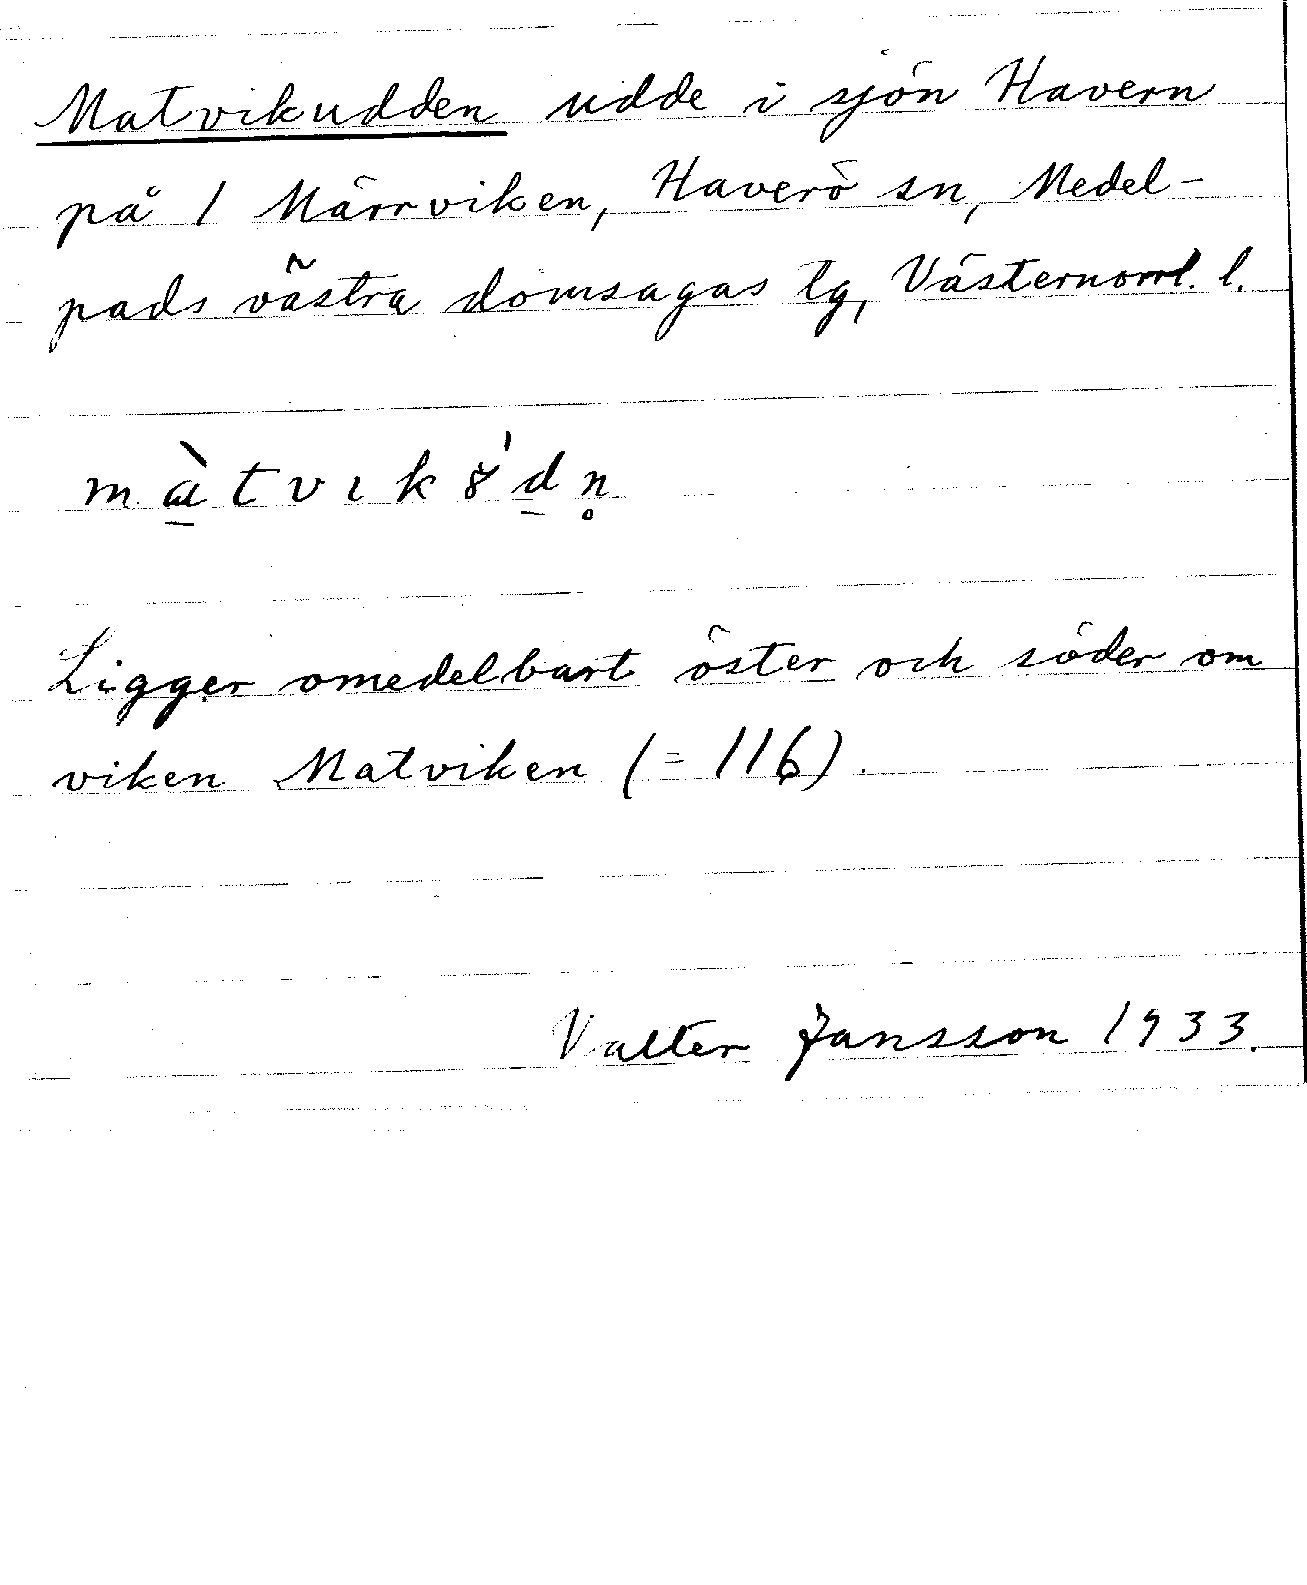 Matvikudden udde i sjön Havern
på 1 Märrviken, Haverö sn, Medel-
pads västra domsagas tg, Västernorrl. l.
màtvıkȣ́dn̥
Ligger omedelbart öster och söder om
viken Matviken (=116).
Valter Jansson 1933.